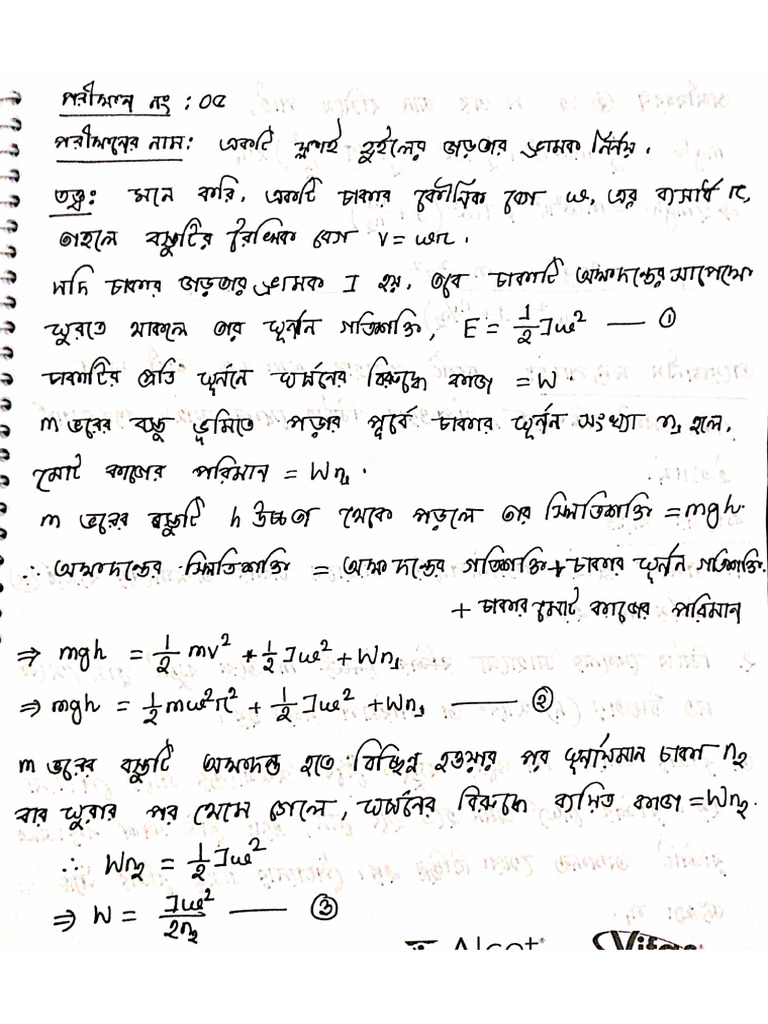 পরীক্ষণ নং : ০৫
পরীক্ষণের নাম: একটি ফ্লাই হুইলের জড়তার ভ্রামক নির্নয়।
তত্ত্ব: মনে করি, একটি চাকার কৌণিক বেগ ω, এর ব্যাসার্ধ r,
তাহলে বস্তুটির রৈখিক বেগ v = ωr.
যদি চাকার জড়তার ভ্রামক I হয়, তবে চাকাটি অক্ষদন্ডের সাপেক্ষে
ঘুরতে থাকলে তার ঘূর্নন গতিশক্তি, E = 1/2 Iω² — ①
চাকাটির প্রতি ঘূর্ননে ঘর্ষনের বিরুদ্ধে কাজ = W.
m ভরের বস্তু ভূমিতে পড়ার পূর্বে চাকার ঘূর্নন সংখ্যা n₁ হলে,
মোট কাজের পরিমান = Wn₁.
m ভরের বস্তুটি h উচ্চতা থেকে পড়লে তার স্থিতিশক্তি = mgh.
∴ অক্ষদন্ডের স্থিতিশক্তি = অক্ষদন্ডের গতিশক্তি + চাকার ঘূর্নন গতিশক্তি
+ চাকার মোট কাজের পরিমান
⇒ mgh = 1/2 mv² + 1/2 Iω² + Wn₁
⇒ mgh = 1/2 mω²r² + 1/2 Iω² + Wn₁ — ②
m ভরের বস্তুটি অক্ষদন্ড হতে বিচ্ছিন্ন হওয়ার পর ঘূর্নায়মান চাকা n₂
বার ঘুরার পর থেমে গেলে, ঘর্ষনের বিরুদ্ধে ব্যয়িত কাজ = Wn₂.
∴ Wn₂ = 1/2 Iω²
⇒ W = Iω²/2n₂ — ③